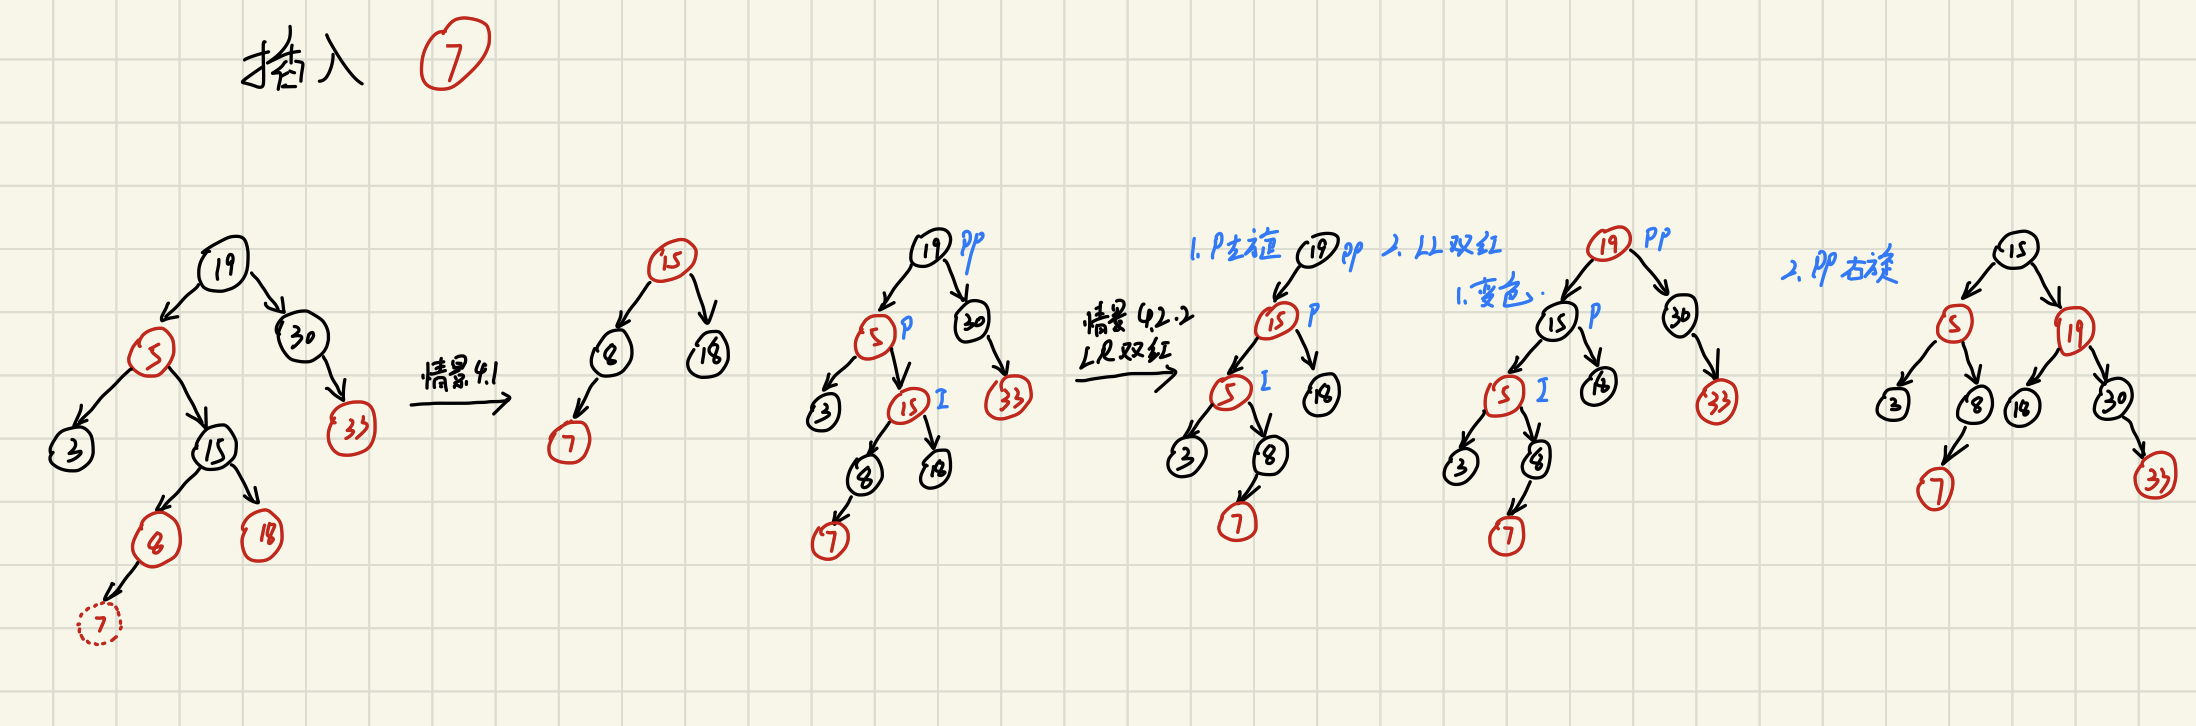 插入 7
19
5 30
3 15 33
8 18
7
情景4.1
15
8 18
7
19 PP
5 P 30
3 15 I 33
8 18
7
情景 4.2.2
LR双红
1. P左旋
19 PP
15 P
5 I 18
3 8
7
2. LL双红
1. 变色.
19 PP
15 P 30
5 I 18 33
3 8
7
2. PP右旋
15
5 19
3 8 18 30
7 33